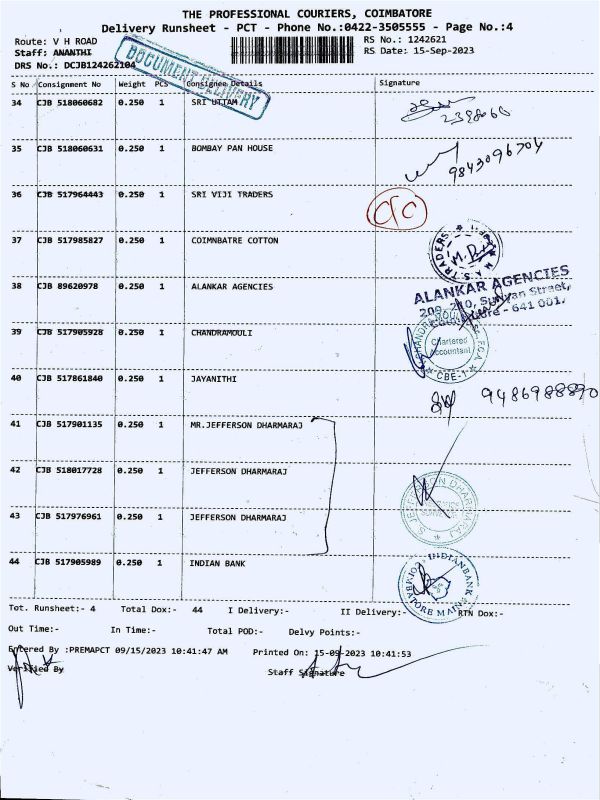 THE PROFESSIONAL COURIERS, COIMBATORE
Delivery Runsheet - PCT - Phone No.:0422-3505555 - Page No.:4
Route: V H ROAD RS No.: 1242621
Staff: ANANTHI RS Date: 15-Sep-2023
DRS No.: DCJB124262104
DOCUMENT DELIVERY
S No Consignment No Weight PCS Consignee Details Signature
34 CJB 518060682 0.250 1 SRI UTTAM
2398060
35 CJB 518060631 0.250 1 BOMBAY PAN HOUSE
9843096704
36 CJB 517964443 0.250 1 SRI VIJI TRADERS
37 CJB 517985827 0.250 1 COIMNBATRE COTTON
M.A.S. TRADERS
38 CJB 89620978 0.250 1 ALANKAR AGENCIES
ALANKAR AGENCIES
209, 210, Street,
- 641 001.
39 CJB 517905928 0.250 1 CHANDRAMOULI
Chartered
Accountant
CBE-1
40 CJB 517861840 0.250 1 JAYANITHI
9486988890
41 CJB 517901135 0.250 1 MR.JEFFERSON DHARMARAJ
42 CJB 518017728 0.250 1 JEFFERSON DHARMARAJ
S. JEFFERSON DHARMARAJ
43 CJB 517976961 0.250 1 JEFFERSON DHARMARAJ
44 CJB 517905989 0.250 1 INDIAN BANK
INDIAN BANK
COIMBATORE MAIN
Tot. Runsheet:- 4 Total Dox:- 44 I Delivery:- II Delivery:- RTN Dox:-
Out Time:- In Time:- Total POD:- Delvy Points:-
Entered By :PREMAPCT 09/15/2023 10:41:47 AM Printed On: 15-09-2023 10:41:53
Verified By Staff Signature